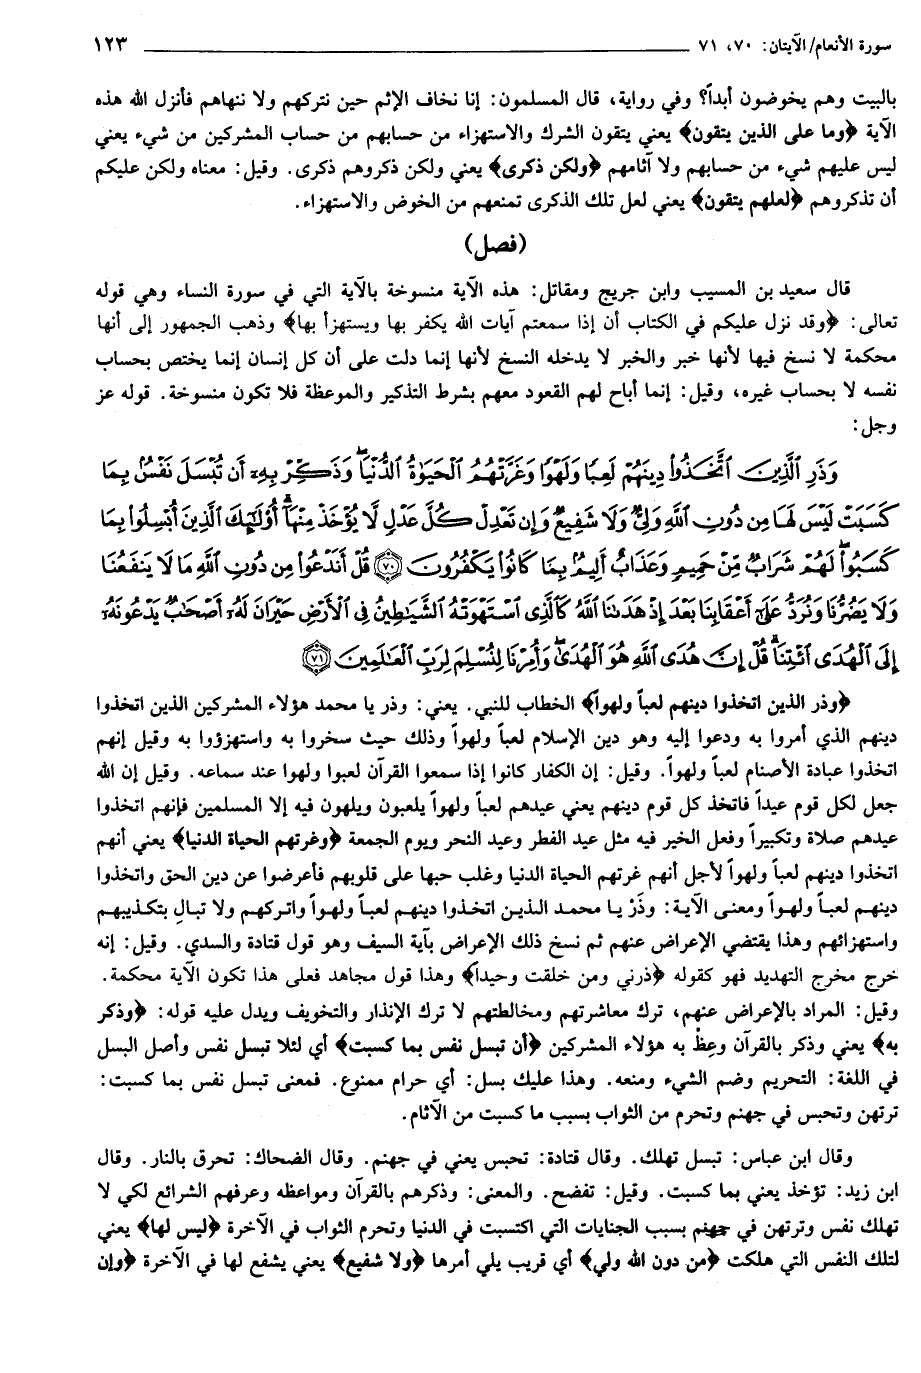 سورة الأنعام/ الآيتان: ٧٠، ٧١ ١٢٣
بالبيت وهم يخوضون أبداً؟ وفي رواية، قال المسلمون: إنا نخاف الإثم حين نتركهم ولا ننهاهم فأنزل الله هذه
الآية ﴿وما على الذين يتقون﴾ يعني يتقون الشرك والاستهزاء من حسابهم من حساب المشركين من شيء يعني
ليس عليهم شيء من حسابهم ولا آثامهم ﴿ولكن ذكرى﴾ يعني ولكن ذكروهم ذكرى. وقيل: معناه ولكن عليكم
أن تذكروهم ﴿لعلهم يتقون﴾ يعني لعل تلك الذكرى تمنعهم من الخوض والاستهزاء.
(فصل)
قال سعيد بن المسيب وابن جريج ومقاتل: هذه الآية منسوخة بالآية التي في سورة النساء وهي قوله
تعالى: ﴿وقد نزل عليكم في الكتاب أن إذا سمعتم آيات الله يكفر بها ويستهزأ بها﴾ وذهب الجمهور إلى أنها
محكمة لا نسخ فيها لأنها خبر والخبر لا يدخله النسخ لأنها إنما دلت على أن كل إنسان إنما يختص بحساب
نفسه لا بحساب غيره، وقيل: إنما أباح لهم القعود معهم بشرط التذكير والموعظة فلا تكون منسوخة. قوله عز
وجل:
وَذَرِ ٱلَّذِينَ ٱتَّخَذُوا۟ دِينَهُمْ لَعِبًا وَلَهْوًا وَغَرَّتْهُمُ ٱلْحَيَوٰةُ ٱلدُّنْيَا ۚ وَذَكِّرْ بِهِۦٓ أَن تُبْسَلَ نَفْسٌۢ بِمَا
كَسَبَتْ لَيْسَ لَهَا مِن دُونِ ٱللَّهِ وَلِىٌّ وَلَا شَفِيعٌ وَإِن تَعْدِلْ كُلَّ عَدْلٍ لَّا يُؤْخَذْ مِنْهَآ ۗ أُو۟لَٰٓئِكَ ٱلَّذِينَ أُبْسِلُوا۟ بِمَا
كَسَبُوا۟ ۖ لَهُمْ شَرَابٌ مِّنْ حَمِيمٍ وَعَذَابٌ أَلِيمٌۢ بِمَا كَانُوا۟ يَكْفُرُونَ ﴿٧٠﴾ قُلْ أَنَدْعُوا۟ مِن دُونِ ٱللَّهِ مَا لَا يَنفَعُنَا
وَلَا يَضُرُّنَا وَنُرَدُّ عَلَىٰٓ أَعْقَابِنَا بَعْدَ إِذْ هَدَىٰنَا ٱللَّهُ كَٱلَّذِى ٱسْتَهْوَتْهُ ٱلشَّيَٰطِينُ فِى ٱلْأَرْضِ حَيْرَانَ لَهُۥٓ أَصْحَٰبٌ يَدْعُونَهُۥٓ
إِلَى ٱلْهُدَى ٱئْتِنَا ۗ قُلْ إِنَّ هُدَى ٱللَّهِ هُوَ ٱلْهُدَىٰ ۖ وَأُمِرْنَا لِنُسْلِمَ لِرَبِّ ٱلْعَٰلَمِينَ ﴿٧١﴾
﴿وذر الذين اتخذوا دينهم لعباً ولهواً﴾ الخطاب للنبي. يعني: وذر يا محمد هؤلاء المشركين الذين اتخذوا
دينهم الذي أمروا به ودعوا إليه وهو دين الإسلام لعباً ولهواً وذلك حيث سخروا به واستهزؤوا به وقيل إنهم
اتخذوا عبادة الأصنام لعباً ولهواً. وقيل: إن الكفار كانوا إذا سمعوا القرآن لعبوا ولهوا عند سماعه. وقيل إن الله
جعل لكل قوم عيداً فاتخذ كل قوم دينهم يعني عيدهم لعباً ولهواً يلعبون ويلهون فيه إلا المسلمين فإنهم اتخذوا
عيدهم صلاة وتكبيراً وفعل الخير فيه مثل عيد الفطر وعيد النحر ويوم الجمعة ﴿وغرتهم الحياة الدنيا﴾ يعني أنهم
اتخذوا دينهم لعباً ولهواً لأجل أنهم غرتهم الحياة الدنيا وغلب حبها على قلوبهم فأعرضوا عن دين الحق واتخذوا
دينهم لعباً ولهواً ومعنى الآية: وذَرْ يا محمد الذين اتخذوا دينهم لعباً ولهواً واتركهم ولا تبالِ بتكذيبهم
واستهزائهم وهذا يقتضي الإعراض عنهم ثم نسخ ذلك الإعراض بآية السيف وهو قول قتادة والسدي. وقيل: إنه
خرج مخرج التهديد فهو كقوله ﴿ذرني ومن خلقت وحيداً﴾ وهذا قول مجاهد فعلى هذا تكون الآية محكمة.
وقيل: المراد بالإعراض عنهم، ترك معاشرتهم ومخالطتهم لا ترك الإنذار والتخويف ويدل عليه قوله: ﴿وذكر
به﴾ يعني وذكر بالقرآن وعِظْ به هؤلاء المشركين ﴿أن تبسل نفس بما كسبت﴾ أي لئلا تبسل نفس وأصل البسل
في اللغة: التحريم وضم الشيء ومنعه. وهذا عليك بسل: أي حرام ممنوع. فمعنى تبسل نفس بما كسبت:
ترتهن وتحبس في جهنم وتحرم من الثواب بسبب ما كسبت من الآثام.
وقال ابن عباس: تبسل تهلك. وقال قتادة: تحبس يعني في جهنم. وقال الضحاك: تحرق بالنار. وقال
ابن زيد: تؤخذ يعني بما كسبت. وقيل: تفضح. والمعنى: وذكرهم بالقرآن ومواعظه وعرفهم الشرائع لكي لا
تهلك نفس وترتهن في جهنم بسبب الجنايات التي اكتسبت في الدنيا وتحرم الثواب في الآخرة ﴿ليس لها﴾ يعني
لتلك النفس التي هلكت ﴿من دون الله ولي﴾ أي قريب يلي أمرها ﴿ولا شفيع﴾ يعني يشفع لها في الآخرة ﴿وإن